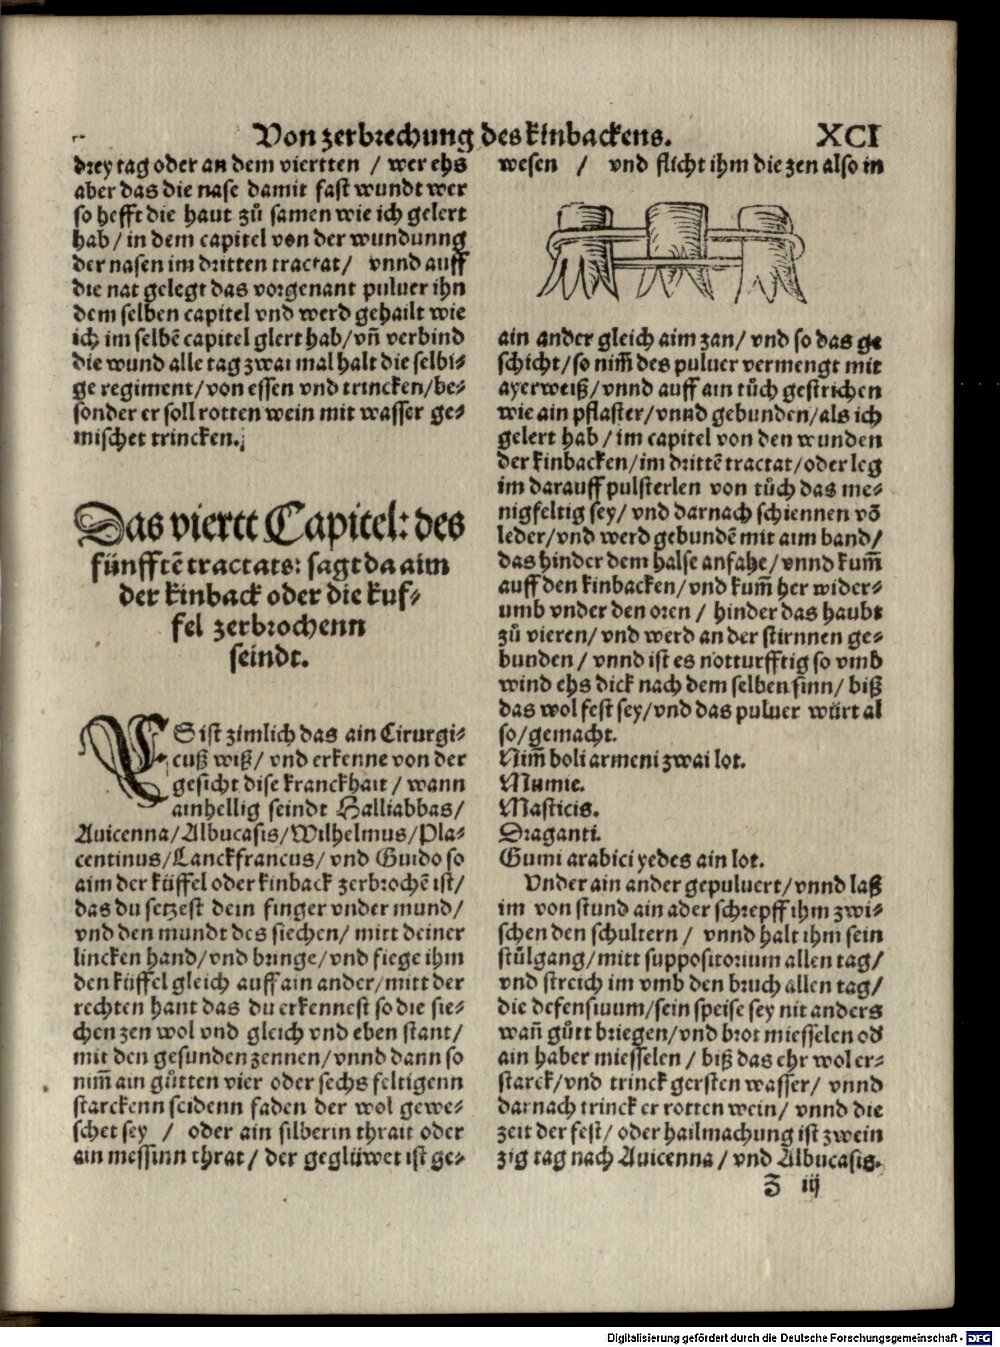 Von zerbrechung des kinbackens. XCI
drey tag oder an dem viertten / wer ehs
aber das die nase damit fast wundt wer
so hefft die haut zů samen wie ich gelert
hab / in dem capitel von der wundunng
der nasen im dritten tractat / vnnd auff
die nat gelegt das vorgenant puluer ihn
dem selben capitel vnd werd gehailt wie
ich im selbē capitel glert hab / vñ verbind
die wund alle tag zwai mal halt die selbi⸗
ge regiment / von essen vnd trincken / be⸗
sonder er soll rotten wein mit wasser ge⸗
mischet trincken.
Das viertt Capitel: des
fünfftē tractats: sagt da aim
der kinback oder die kuf⸗
fel zerbrochenn
seindt.
ES ist zimlich das ain Cirurgi⸗
cuß wiß / vnd erkenne von der
gesicht dise kranckhait / wann
ainhellig seindt Halliabbas /
Auicenna / Albucasis / Wilhelmus / Pla⸗
centinus / Lanckfrancus / vnd Guido so
aim der küffel oder kinback zerbrochē ist /
das du setzest dein finger vnder mund /
vnd den mundt des siechen / mitt deiner
lincken hand / vnd bringe / vnd fiege ihm
den küffel gleich auff ain ander / mitt der
rechten hant das du erkennest so die sie⸗
chen zen wol vnd gleich vnd eben stant /
mit den gesunden zennen / vnnd dann so
nim̃ ain gůtten vier oder sechs feltigenn
starckenn seidenn faden der wol gewe⸗
schet sey / oder ain silberin thrait oder
ain messinn thrat / der geglüwet ist ge⸗
wesen / vnd flicht ihm die zen also in
ain ander gleich aim zan / vnd so das ge
schicht / so nim̃ des puluer vermengt mit
ayerweiß / vnnd auff ain tůch gestrichen
wie ain pflaster / vnnd gebunden / als ich
gelert hab / im capitel von den wunden
der kinbacken / im drittē tractat / oder leg
im darauff pulsterlen von tůch das me⸗
nigfeltig sey / vnd darnach schiennen vō
leder / vnd werd gebundē mit aim band /
das hinder dem halse anfahe / vnnd kum̃
auff den kinbacken / vnd kum̃ her wider⸗
umb vnder den oren / hinder das haubt
zů vieren / vnd werd an der stirnnen ge⸗
bunden / vnnd ist es notturfftig so vmb
wind ehs dick nach dem selben sinn / biß
das wol fest sey / vnd das puluer würt al
so / gemacht.
Nim̃ boli armeni zwai lot.
Mumie.
Masticis.
Draganti.
Gumi arabici yedes ain lot.
Vnder ain ander gepuluert / vnnd laß
im von stund ain ader schrepff ihm zwi⸗
schen den schultern / vnnd halt ihm sein
stůlgang / mitt suppositorium allen tag /
vnd streich im vmb den bruch allen tag /
die defensiuum / sein speise sey nit anders
wañ gůtt briegen / vnd brot miesselen od
ain haber miesselen / biß das ehr wol er⸗
starck / vnd trinck gersten wasser / vnnd
darnach trinck er rotten wein / vnnd die
zeit der fest / oder hailmachung ist zwein
zig tag nach Auicenna / vnd Albucasis.
Z iij
Digitalisierung gefördert durch die Deutsche Forschungsgemeinschaft - DFG